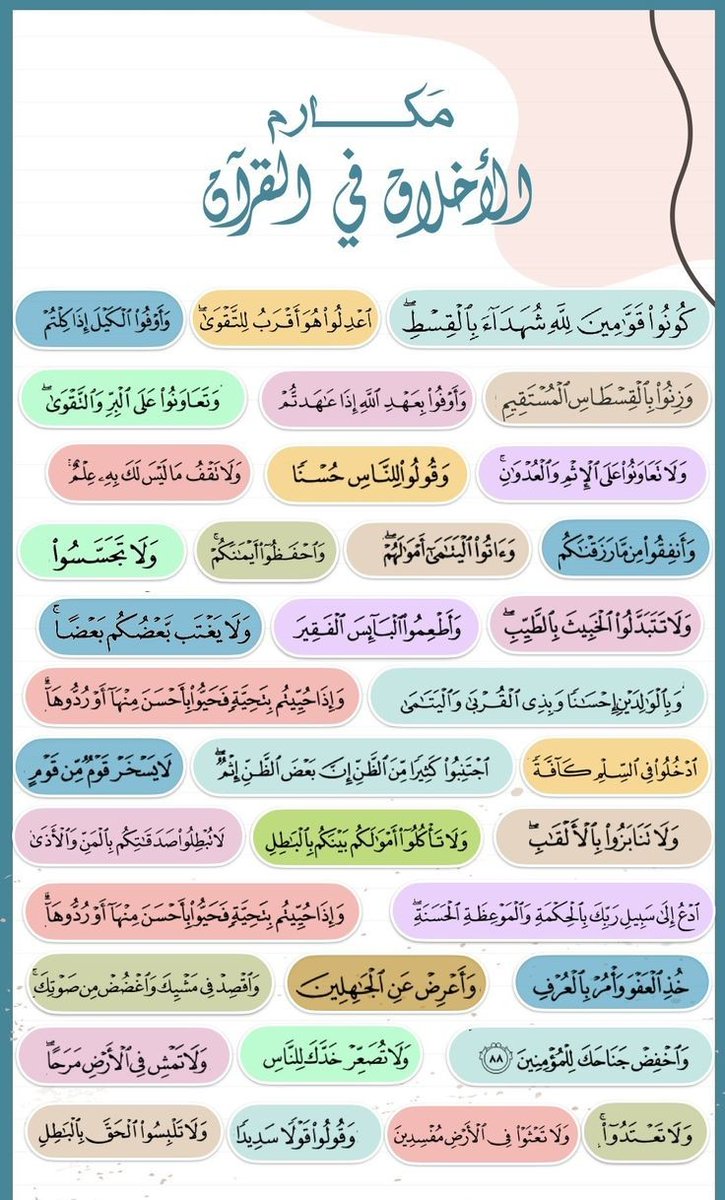 مَكــــــارم
الأخلاق في القرآن
كُونُوا۟ قَوَّٰمِينَ لِلَّهِ شُهَدَآءَ بِٱلْقِسْطِ ۖ ٱعْدِلُوا۟ هُوَ أَقْرَبُ لِلتَّقْوَىٰ ۖ وَأَوْفُوا۟ ٱلْكَيْلَ إِذَا كِلْتُمْ
وَزِنُوا۟ بِٱلْقِسْطَاسِ ٱلْمُسْتَقِيمِ وَأَوْفُوا۟ بِعَهْدِ ٱللَّهِ إِذَا عَٰهَدتُّمْ وَتَعَاوَنُوا۟ عَلَى ٱلْبِرِّ وَٱلتَّقْوَىٰ ۖ
وَلَا تَعَاوَنُوا۟ عَلَى ٱلْإِثْمِ وَٱلْعُدْوَٰنِ ۚ وَقُولُوا۟ لِلنَّاسِ حُسْنًا وَلَا تَقْفُ مَا لَيْسَ لَكَ بِهِۦ عِلْمٌ ۚ
وَأَنفِقُوا۟ مِن مَّا رَزَقْنَٰكُم وَءَاتُوا۟ ٱلْيَتَٰمَىٰٓ أَمْوَٰلَهُمْ ۖ وَٱحْفَظُوٓا۟ أَيْمَٰنَكُمْ ۚ وَلَا تَجَسَّسُوا۟
وَلَا تَتَبَدَّلُوا۟ ٱلْخَبِيثَ بِٱلطَّيِّبِ ۖ وَأَطْعِمُوا۟ ٱلْبَآئِسَ ٱلْفَقِيرَ وَلَا يَغْتَب بَّعْضُكُم بَعْضًا ۚ
وَبِٱلْوَٰلِدَيْنِ إِحْسَٰنًا وَبِذِى ٱلْقُرْبَىٰ وَٱلْيَتَٰمَىٰ وَإِذَا حُيِّيتُم بِتَحِيَّةٍ فَحَيُّوا۟ بِأَحْسَنَ مِنْهَآ أَوْ رُدُّوهَآ ۗ
ٱدْخُلُوا۟ فِى ٱلسِّلْمِ كَآفَّةً ٱجْتَنِبُوا۟ كَثِيرًا مِّنَ ٱلظَّنِّ إِنَّ بَعْضَ ٱلظَّنِّ إِثْمٌ ۖ لَا يَسْخَرْ قَوْمٌ مِّن قَوْمٍ
وَلَا تَنَابَزُوا۟ بِٱلْأَلْقَٰبِ ۖ وَلَا تَأْكُلُوٓا۟ أَمْوَٰلَكُم بَيْنَكُم بِٱلْبَٰطِلِ لَا تُبْطِلُوا۟ صَدَقَٰتِكُم بِٱلْمَنِّ وَٱلْأَذَىٰ
ٱدْعُ إِلَىٰ سَبِيلِ رَبِّكَ بِٱلْحِكْمَةِ وَٱلْمَوْعِظَةِ ٱلْحَسَنَةِ ۖ وَإِذَا حُيِّيتُم بِتَحِيَّةٍ فَحَيُّوا۟ بِأَحْسَنَ مِنْهَآ أَوْ رُدُّوهَآ ۗ
خُذِ ٱلْعَفْوَ وَأْمُرْ بِٱلْعُرْفِ وَأَعْرِضْ عَنِ ٱلْجَٰهِلِينَ وَٱقْصِدْ فِى مَشْيِكَ وَٱغْضُضْ مِن صَوْتِكَ ۚ
وَٱخْفِضْ جَنَاحَكَ لِلْمُؤْمِنِينَ ٨٨ وَلَا تُصَعِّرْ خَدَّكَ لِلنَّاسِ وَلَا تَمْشِ فِى ٱلْأَرْضِ مَرَحًا ۖ
وَلَا تَعْتَدُوٓا۟ ۚ وَلَا تَعْثَوْا۟ فِى ٱلْأَرْضِ مُفْسِدِينَ وَقُولُوا۟ قَوْلًا سَدِيدًا وَلَا تَلْبِسُوا۟ ٱلْحَقَّ بِٱلْبَٰطِلِ